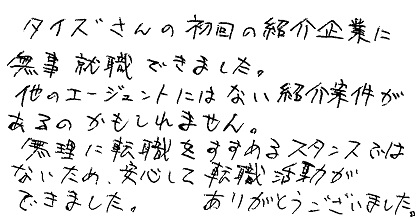 タイズさんの初回の紹介企業に
無事就職できました。
他のエージェントにはない紹介案件が
あるのかもしれません。
無理に転職をすすめるスタンスでは
ないため、安心して転職活動が
できました。　ありがとうございました。